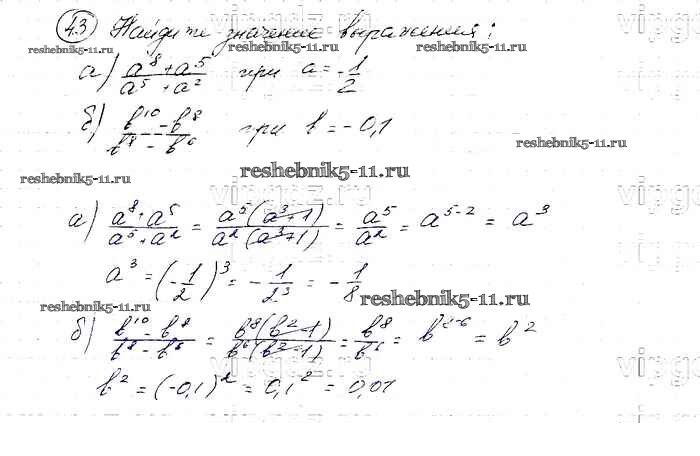 43 Найдите значение выражения:
reshebnik5-11.ru reshebnik5-11.ru reshebnik5-11.ru
а) (a^8 + a^5)/(a^5 + a^2) при a = -1/2
б) (b^10 - b^8)/(b^8 - b^6) при b = -0,1
reshebnik5-11.ru
reshebnik5-11.ru
reshebnik5-11.ru
vipgdz.ru
а) (a^8 + a^5)/(a^5 + a^2) = (a^5(a^3+1))/(a^2(a^3+1)) = a^5/a^2 = a^(5-2) = a^3
a^3 = (-1/2)^3 = -1/2^3 = -1/8
reshebnik5-11.ru reshebnik5-11.ru
б) (b^10 - b^8)/(b^8 - b^6) = (b^8(b^2-1))/(b^6(b^2-1)) = b^8/b^6 = b^(8-6) = b^2
b^2 = (-0,1)^2 = 0,1^2 = 0,01